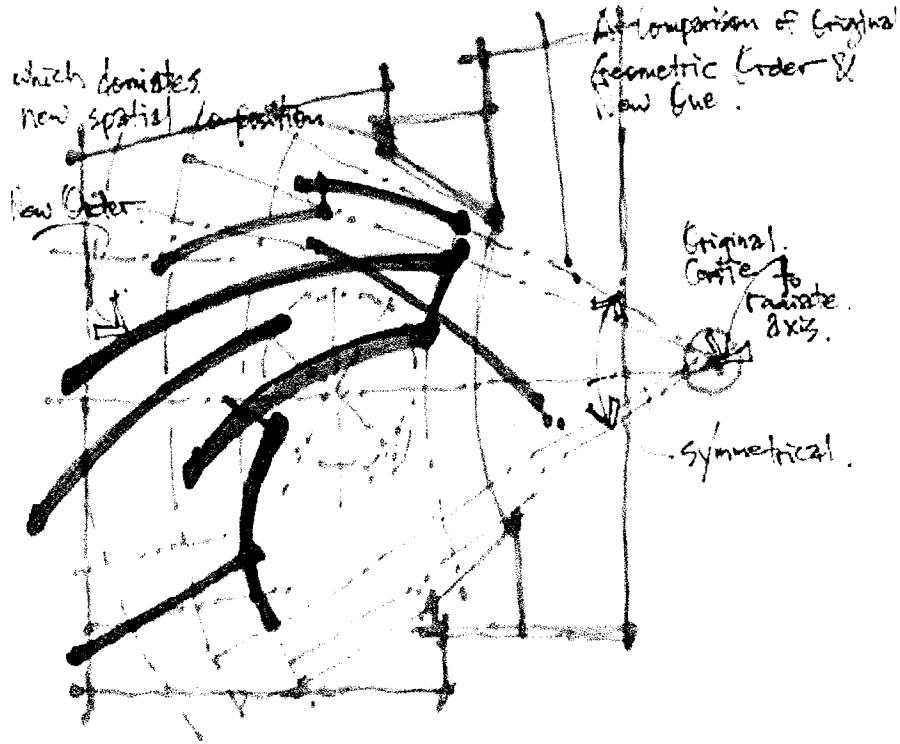 A Comparison of Original
Geometric Order &
New One.
which domiates
new spatial composition
New Order.
Original.
Centre to
radiate.
axis.
symmetrical.